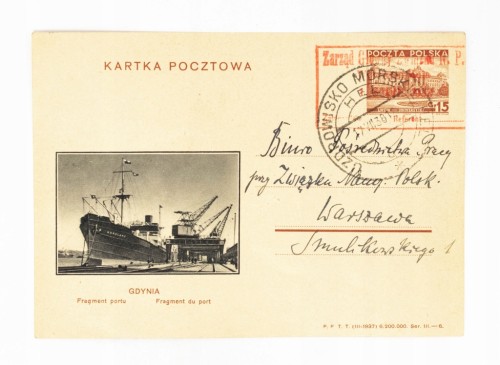 KARTKA POCZTOWA
POCZTA POLSKA
15
UZDROWISKO MORSKIE
HEL
Biuro Pośrednictwa Pracy
przy Związku Naucz. Polsk.
Warszawa
Smulikowskiego 1
GDYNIA
Fragment portu Fragment du port
P. P. T. T. (III-1937) 6.200.000. Ser. III.—6.